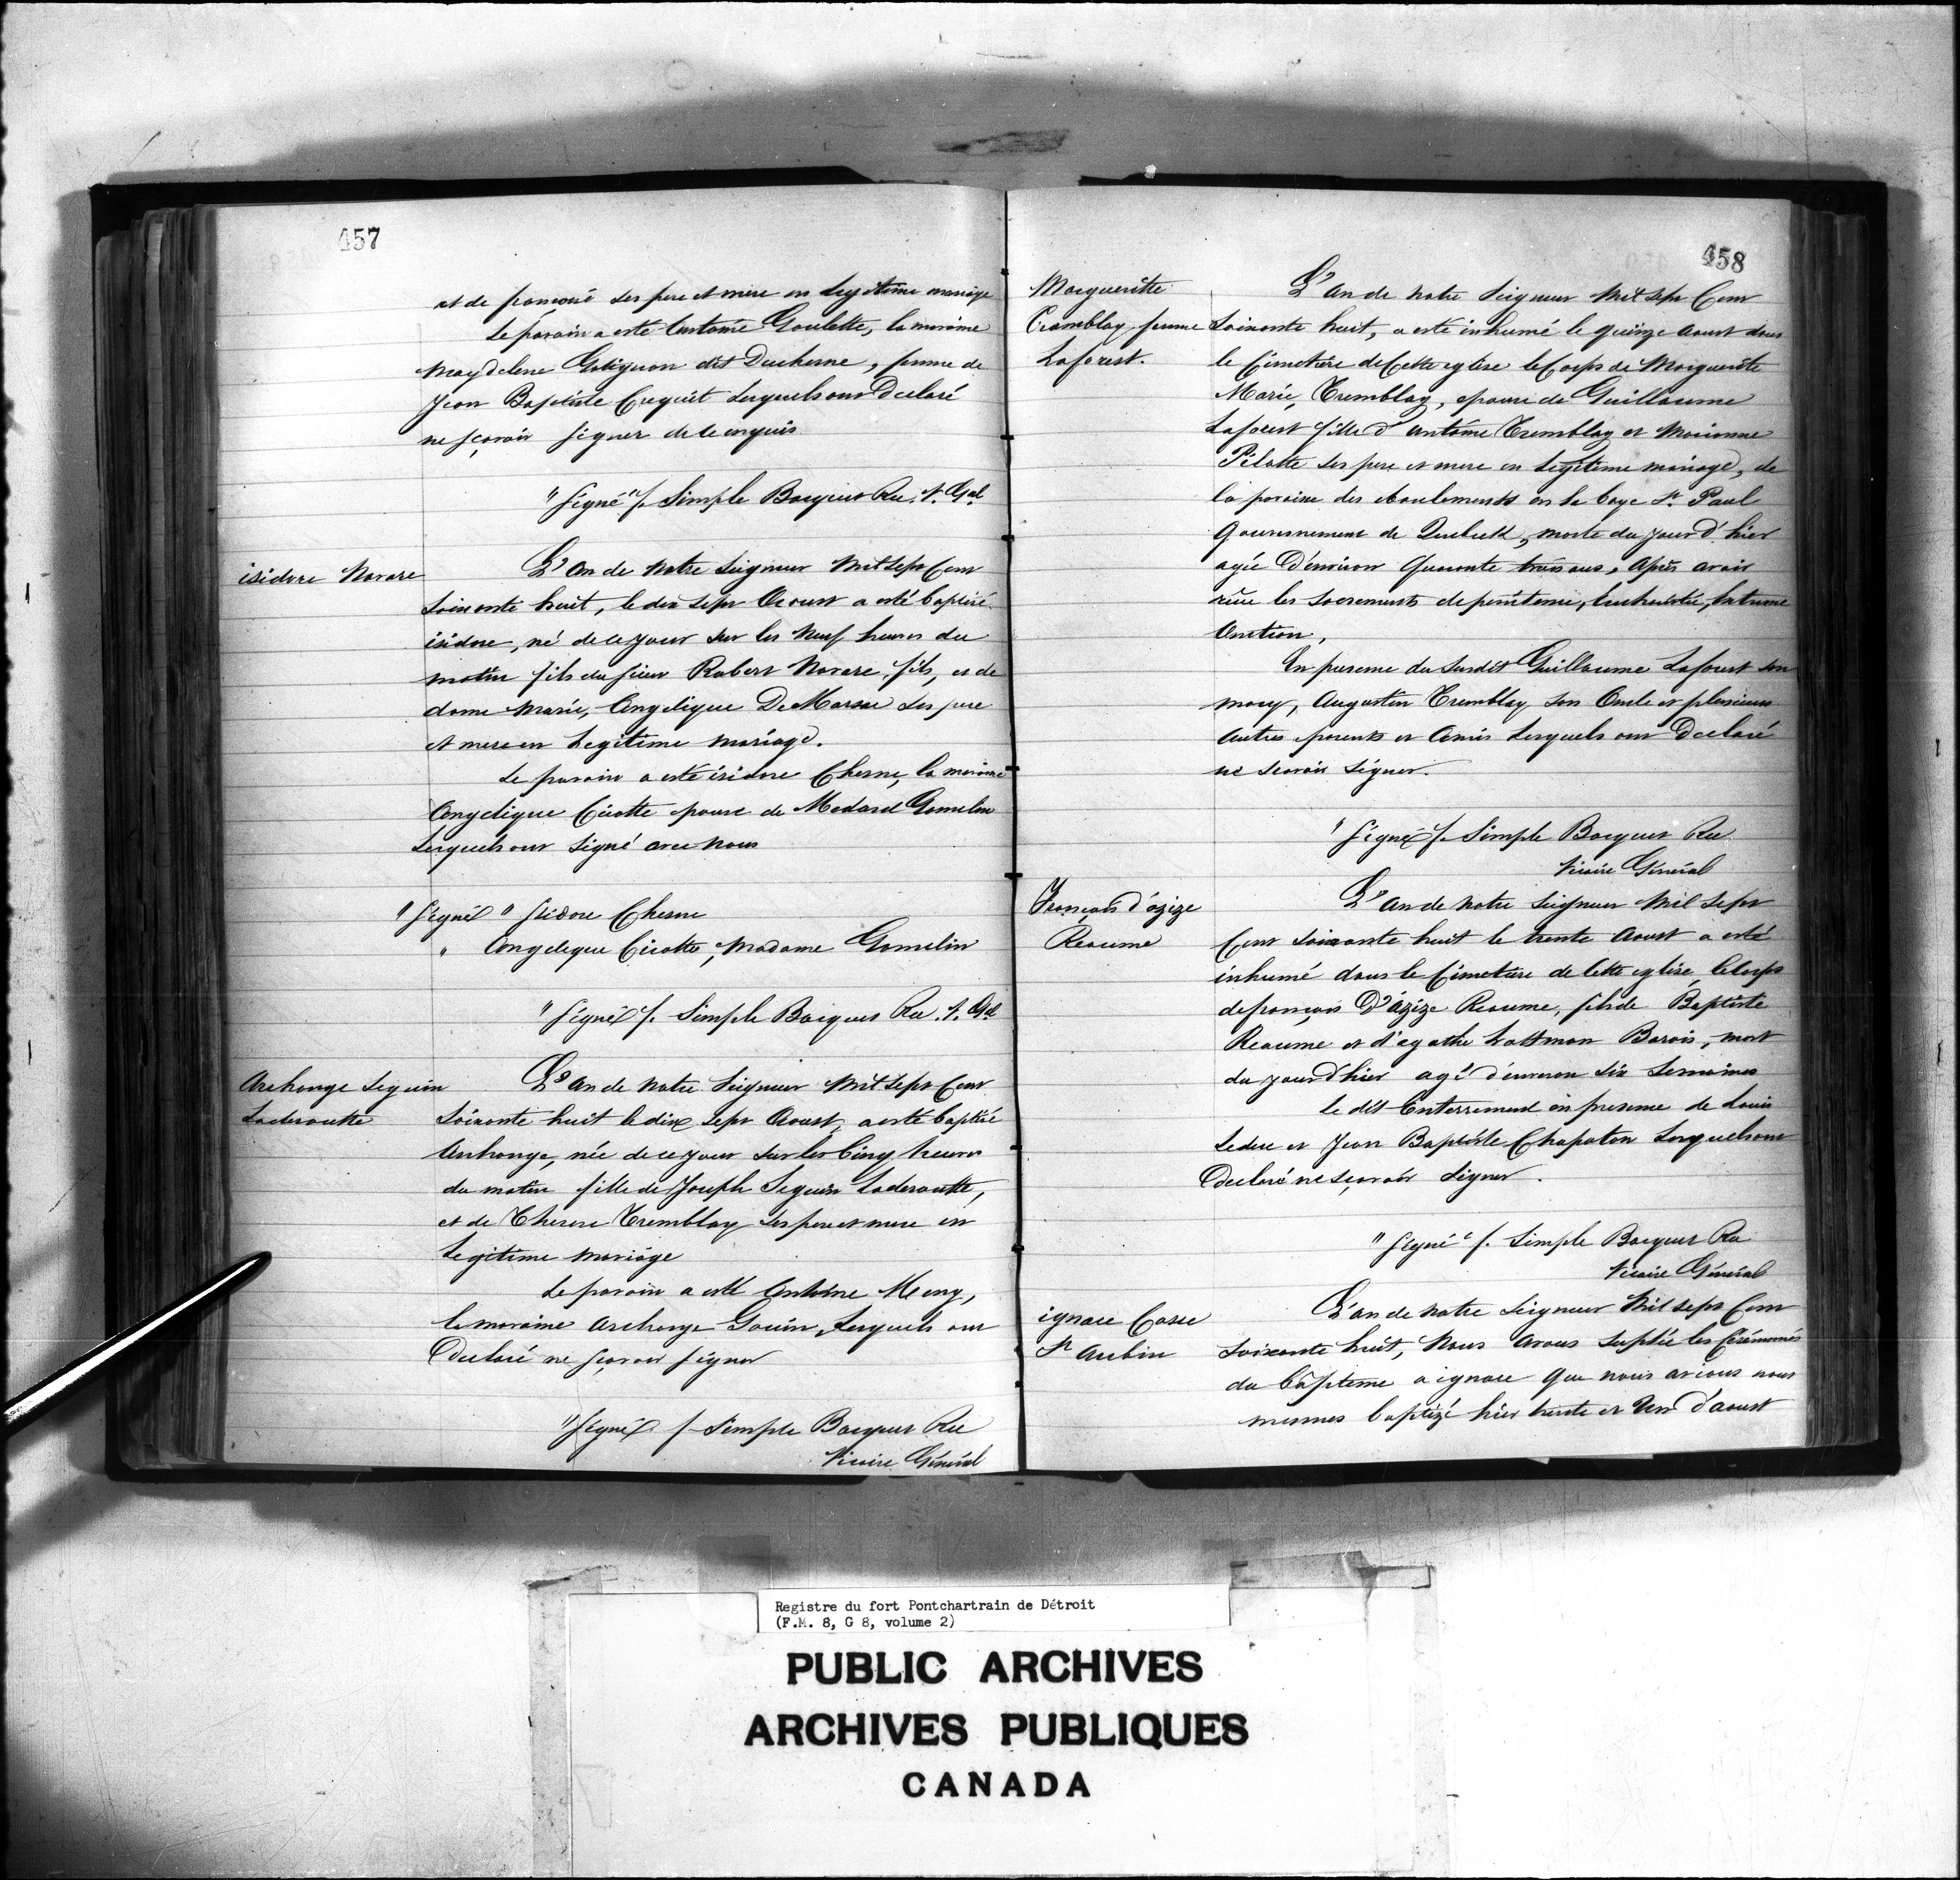 457
et de françoise ses pere et mere en Legitime mariage
Le parain a esté Antoine Goulette, la maraine
Magdelene Gatignon dit Duchesne, femme de
Jean Baptiste Cuquiet Lesquels ont Declaré
ne sçavoir signer de ce enquis
"Signé" f. Simple Bocquet Rec. V. Gal
isidore Navare
L'An de Notre Seigneur Mil Sept Cent
Soixante huit, le dix sept Aoust a esté baptisé
isidore, né de ce jour sur les Neuf heures du
matin fils du sieur Robert Navare fils, et de
dame Marie, Angelique De Marsac ses pere
et mere en Legitime Mariage.
Le parain a esté isidore Chesne, la maraine
Angelique Cicotte epouse de Medard Gamelin
Lesquels ont Signé avec Nous
"Signé" Isidore Chesne
" Angelique Cicotte, Madame Gamelin
"Signé" f. Simple Bocquet Rec. V. Gal
Archange Seguin
Laderoutte
L'An de Notre Seigneur Mil Sept Cent
Soixante huit le dix sept Aoust, a esté baptisé
Archange, née de ce jour sur les Cinq heures
du matin fille de Joseph Seguin Laderoutte,
et de Therese Tremblay ses pere et mere en
Legitime Mariage
Le parain a esté Antoine Meny,
la maraine Archange Gouin, Lesquels ont
Declaré ne sçavoir signer
"Signé" f. Simple Bocquet Rec
Vicaire Général
458
Margueritte
Tramblay femme
Laforest.
L'An de Notre Seigneur Mil Sept Cent
Soixante huit, a esté inhumé le quinze Aoust dans
le Cimetiére de Cette eglise le Corps de Marguerite
Marie, Tremblay, epouse de Guillaume
Laforest fille d'Antoine Tremblay et Marianne
Pilotte ses pere et mere en Legitime mariage, de
la paroisse des eboulements en la baye St. Paul
Gouvernement de Quebeck, morte du jour d'hier
agée D'environ Quarante trois ans, Après avoir
reçu les Sacrements de penitence, Euchuristie, Extreme
Onction,
En presence du Susdit Guillaume Laforest son
mary, Augustin Tremblay son Oncle et plusieurs
Autres parents et Amis Lesquels ont Declaré
ne scavoir signer.
"Signé" f. Simple Bocquet Rec
Vicaire Général
François d'azize
Reaume
L'An de Notre Seigneur Mil Sept
Cent Soixante huit le trente Aoust a esté
inhumé dans le Cimetiere de Cette eglise, le Corps
de françois D'Azize Reaume, fils de Baptiste
Reaume et d'agathe Lattman Barois, mort
du jour d'hier agé d'environ Six Semaines
le dit Enterrement en presence de Louis
Leduc et Jean Baptiste Chapaton Lesquels ont
Declaré ne sçavoir Signer.
"Signé" f. Simple Bocquet Rec
Vicaire Général
ignace Casse
St Aubin
L'An de Notre Seigneur Mil Sept Cent
Soixante huit, Nous Avons Suplée les Cérémonies
du bapteme a ignace que nous avions nous
mesmes baptizé hier trente et Un d'aoust
Registre du fort Pontchartrain de Détroit
(F.M. 8, G 8, volume 2)
PUBLIC ARCHIVES
ARCHIVES PUBLIQUES
CANADA